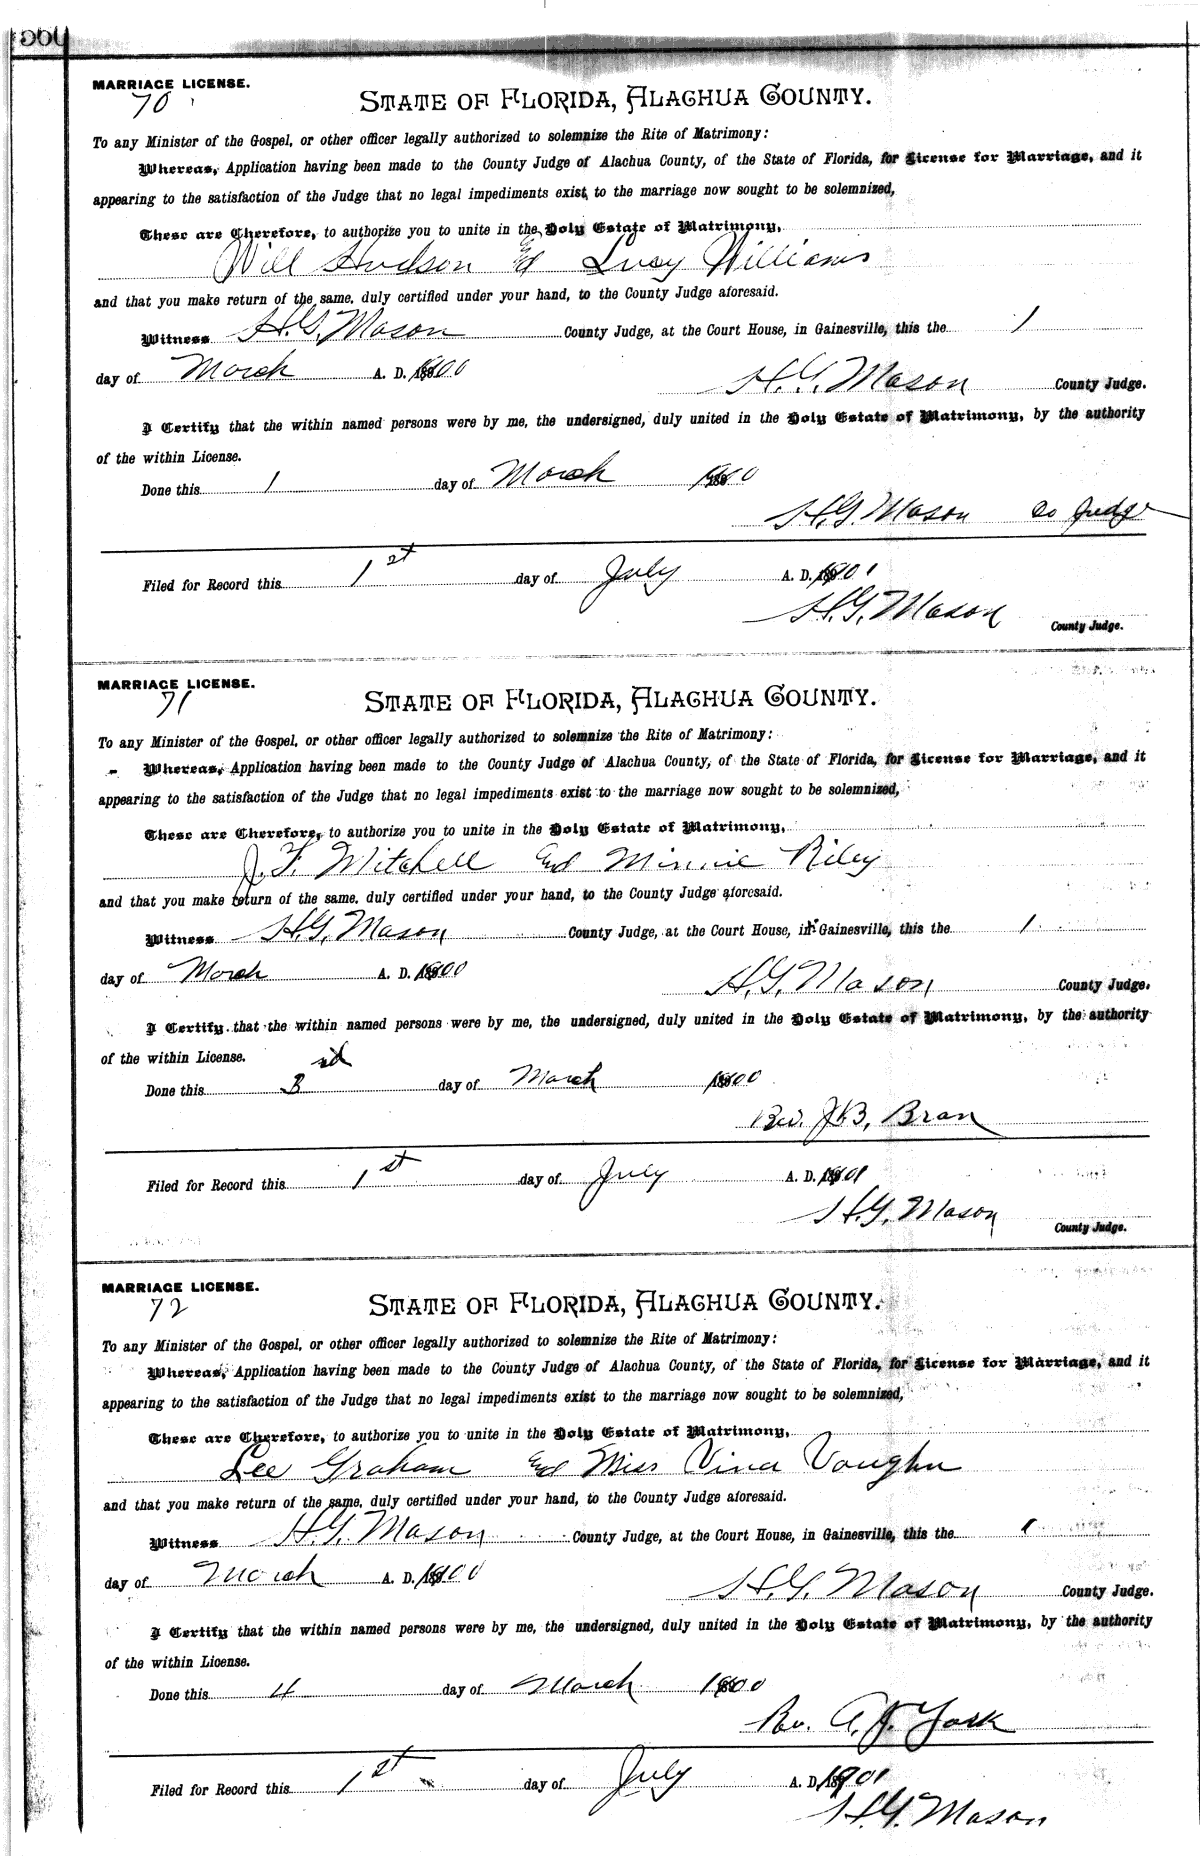 MARRIAGE LICENSE.
70
STATE OF FLORIDA, ALACHUA COUNTY.
To any Minister of the Gospel, or other officer legally authorized to solemnize the Rite of Matrimony:
Whereas, Application having been made to the County Judge of Alachua County, of the State of Florida, for License for Marriage, and it
appearing to the satisfaction of the Judge that no legal impediments exist to the marriage now sought to be solemnized,
These are Therefore, to authorize you to unite in the Holy Estate of Matrimony,
Will Hudson and Lucy Williams
and that you make return of the same, duly certified under your hand, to the County Judge aforesaid.
Witness H.G. Mason County Judge, at the Court House, in Gainesville, this the 1
day of March A. D. 1900 H.G. Mason County Judge.
I Certify that the within named persons were by me, the undersigned, duly united in the Holy Estate of Matrimony, by the authority
of the within License.
Done this 1 day of March 1900
H.G. Mason Co Judge
Filed for Record this 1st day of July A. D. 1901
H.G. Mason
County Judge.
MARRIAGE LICENSE.
71
STATE OF FLORIDA, ALACHUA COUNTY.
To any Minister of the Gospel, or other officer legally authorized to solemnize the Rite of Matrimony:
Whereas, Application having been made to the County Judge of Alachua County, of the State of Florida, for License for Marriage, and it
appearing to the satisfaction of the Judge that no legal impediments exist to the marriage now sought to be solemnized,
These are Therefore, to authorize you to unite in the Holy Estate of Matrimony,
J. F. Mitchell and Minnie Riley
and that you make return of the same, duly certified under your hand, to the County Judge aforesaid.
Witness H.G. Mason County Judge, at the Court House, in Gainesville, this the 1
day of March A. D. 1900 H.G. Mason County Judge.
I Certify that the within named persons were by me, the undersigned, duly united in the Holy Estate of Matrimony, by the authority
of the within License.
Done this 3rd day of March 1900
Rev. J.B. Bran
Filed for Record this 1st day of July A. D. 1901
H.G. Mason
County Judge.
MARRIAGE LICENSE.
72
STATE OF FLORIDA, ALACHUA COUNTY.
To any Minister of the Gospel, or other officer legally authorized to solemnize the Rite of Matrimony:
Whereas, Application having been made to the County Judge of Alachua County, of the State of Florida, for License for Marriage, and it
appearing to the satisfaction of the Judge that no legal impediments exist to the marriage now sought to be solemnized,
These are Therefore, to authorize you to unite in the Holy Estate of Matrimony,
Lee Graham and Miss Vina Vaughn
and that you make return of the same, duly certified under your hand, to the County Judge aforesaid.
Witness H.G. Mason County Judge, at the Court House, in Gainesville, this the 1
day of March A. D. 1900 H.G. Mason County Judge.
I Certify that the within named persons were by me, the undersigned, duly united in the Holy Estate of Matrimony, by the authority
of the within License.
Done this 4 day of March 1900
Rev. A. J. York
Filed for Record this 1st day of July A. D. 1901
H.G. Mason